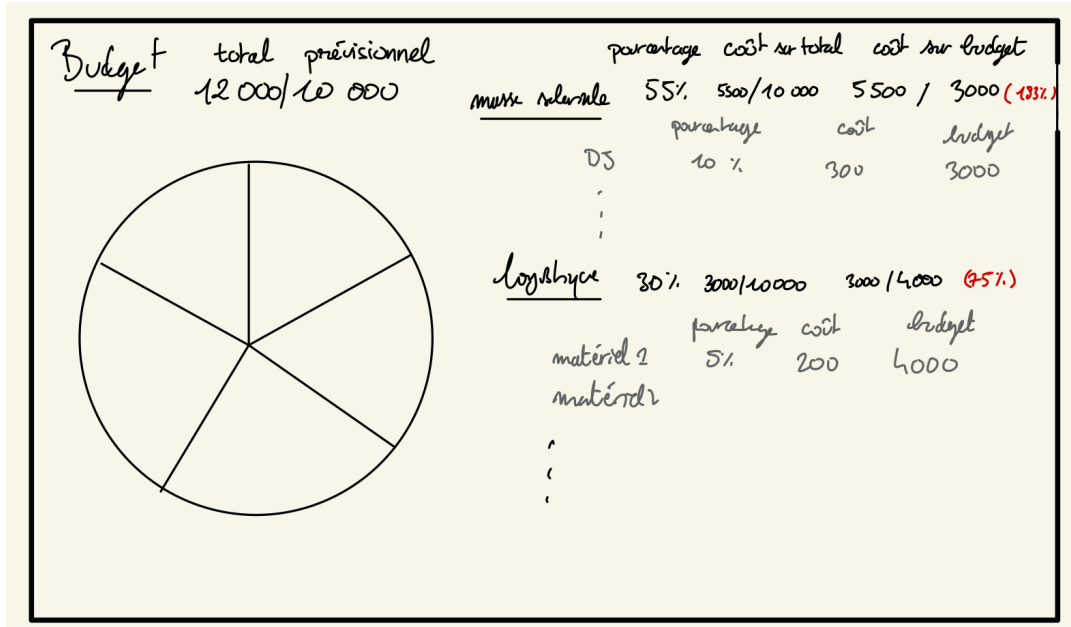 Budget total prévisionnel
12 000/10 000
pourcentage coût sur total coût sur budget
masse salariale 55% 5500/10 000 5500 / 3000 (183%)
pourcentage coût budget
DJ 10 % 300 3000
logistique 30% 3000/10000 3000/4000 (75%)
pourcentage coût budget
matériel 1 5% 200 4000
matériel 2